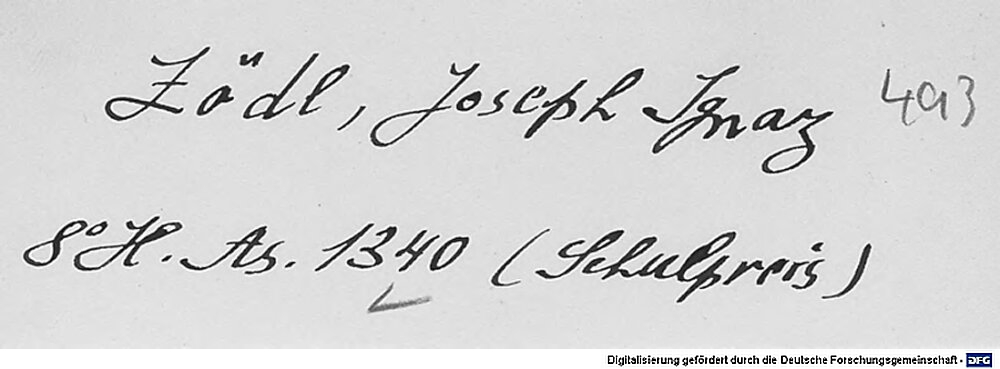 Zödl, Joseph Ignaz 493
8° H. As. 1340 (Schulpreis)
Digitalisierung gefördert durch die Deutsche Forschungsgemeinschaft - DFG